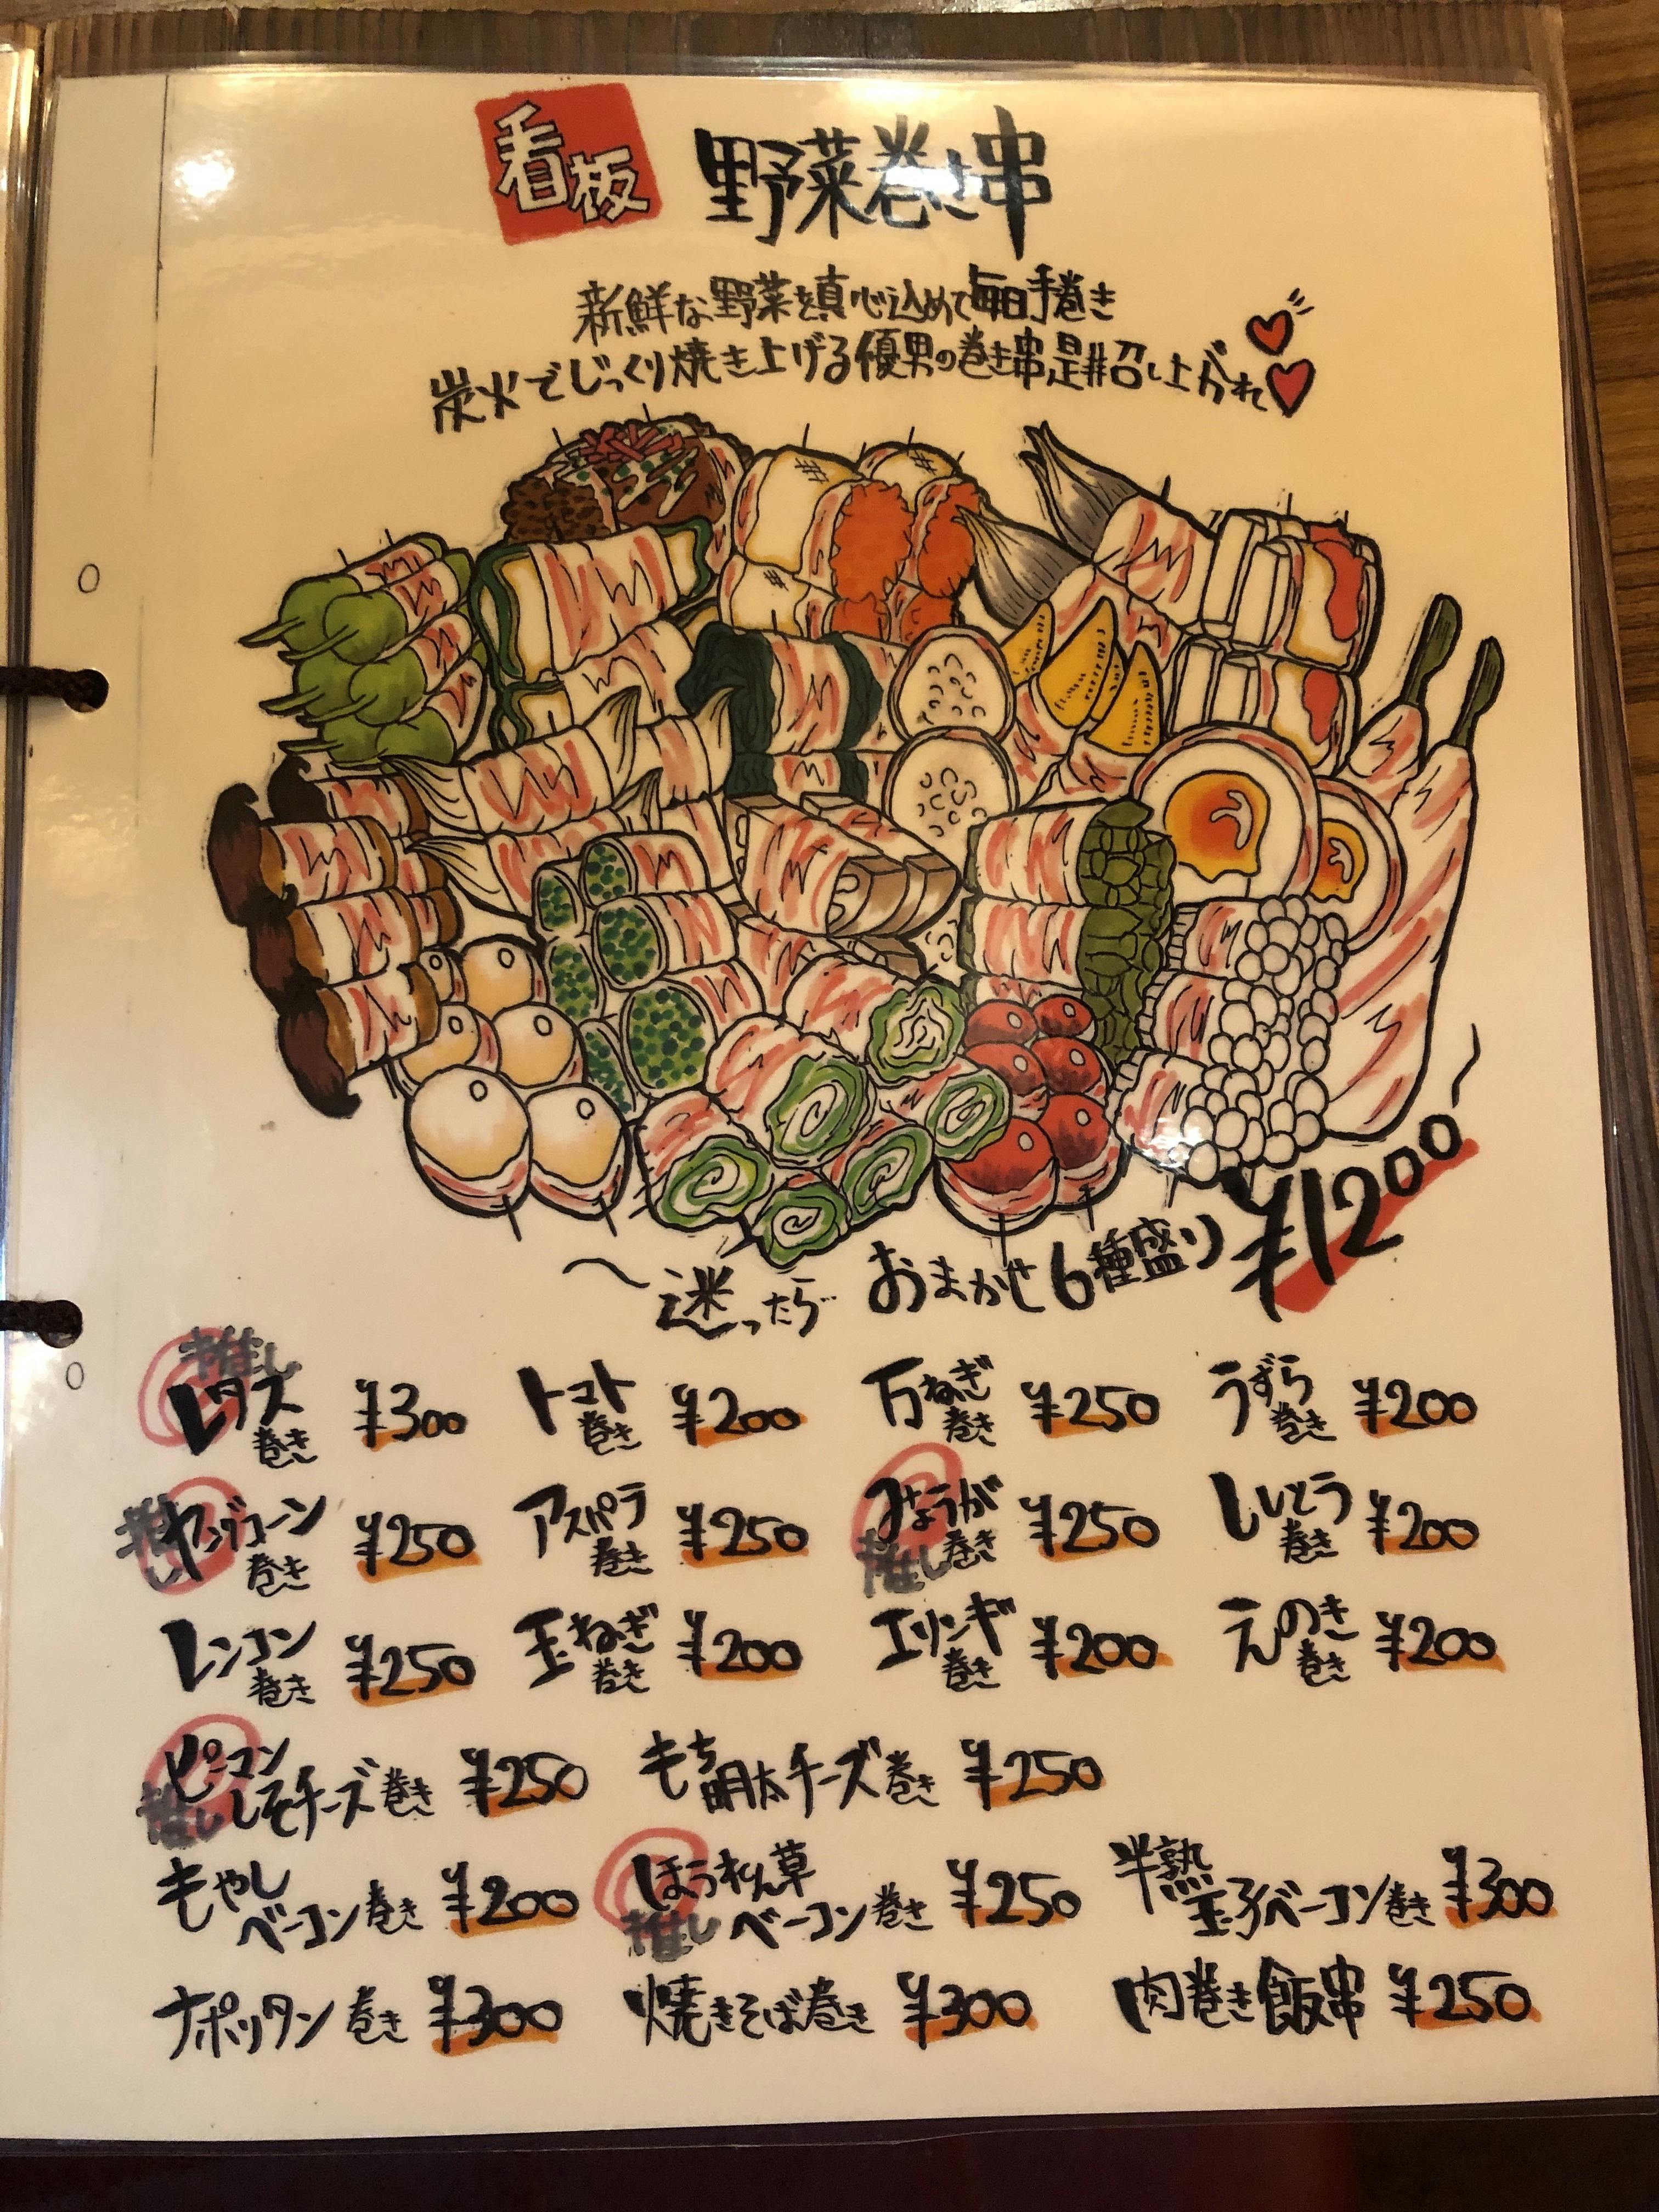 看板 野菜巻き串
新鮮な野菜を真心込めて毎日手巻き
炭火でじっくり焼き上げる優男の巻き串是非召し上がれ
迷ったら おまかせ6種盛り ¥1200
推し レタス巻き ¥300 トマト巻き ¥200 万ねぎ巻き ¥250 うずら巻き ¥200
推し ヤングコーン巻き ¥250 アスパラ巻き ¥250 推し みょうが巻き ¥250 ししとう巻き ¥200
レンコン巻き ¥250 玉ねぎ巻き ¥200 エリンギ巻き ¥200 えのき巻き ¥200
推し ピーマンしそチーズ巻き ¥250 もち明太チーズ巻き ¥250
もやしベーコン巻き ¥200 推し ほうれん草ベーコン巻き ¥250 半熟玉子ベーコン巻き ¥300
ナポリタン巻き ¥300 焼きそば巻き ¥300 肉巻き飯串 ¥250